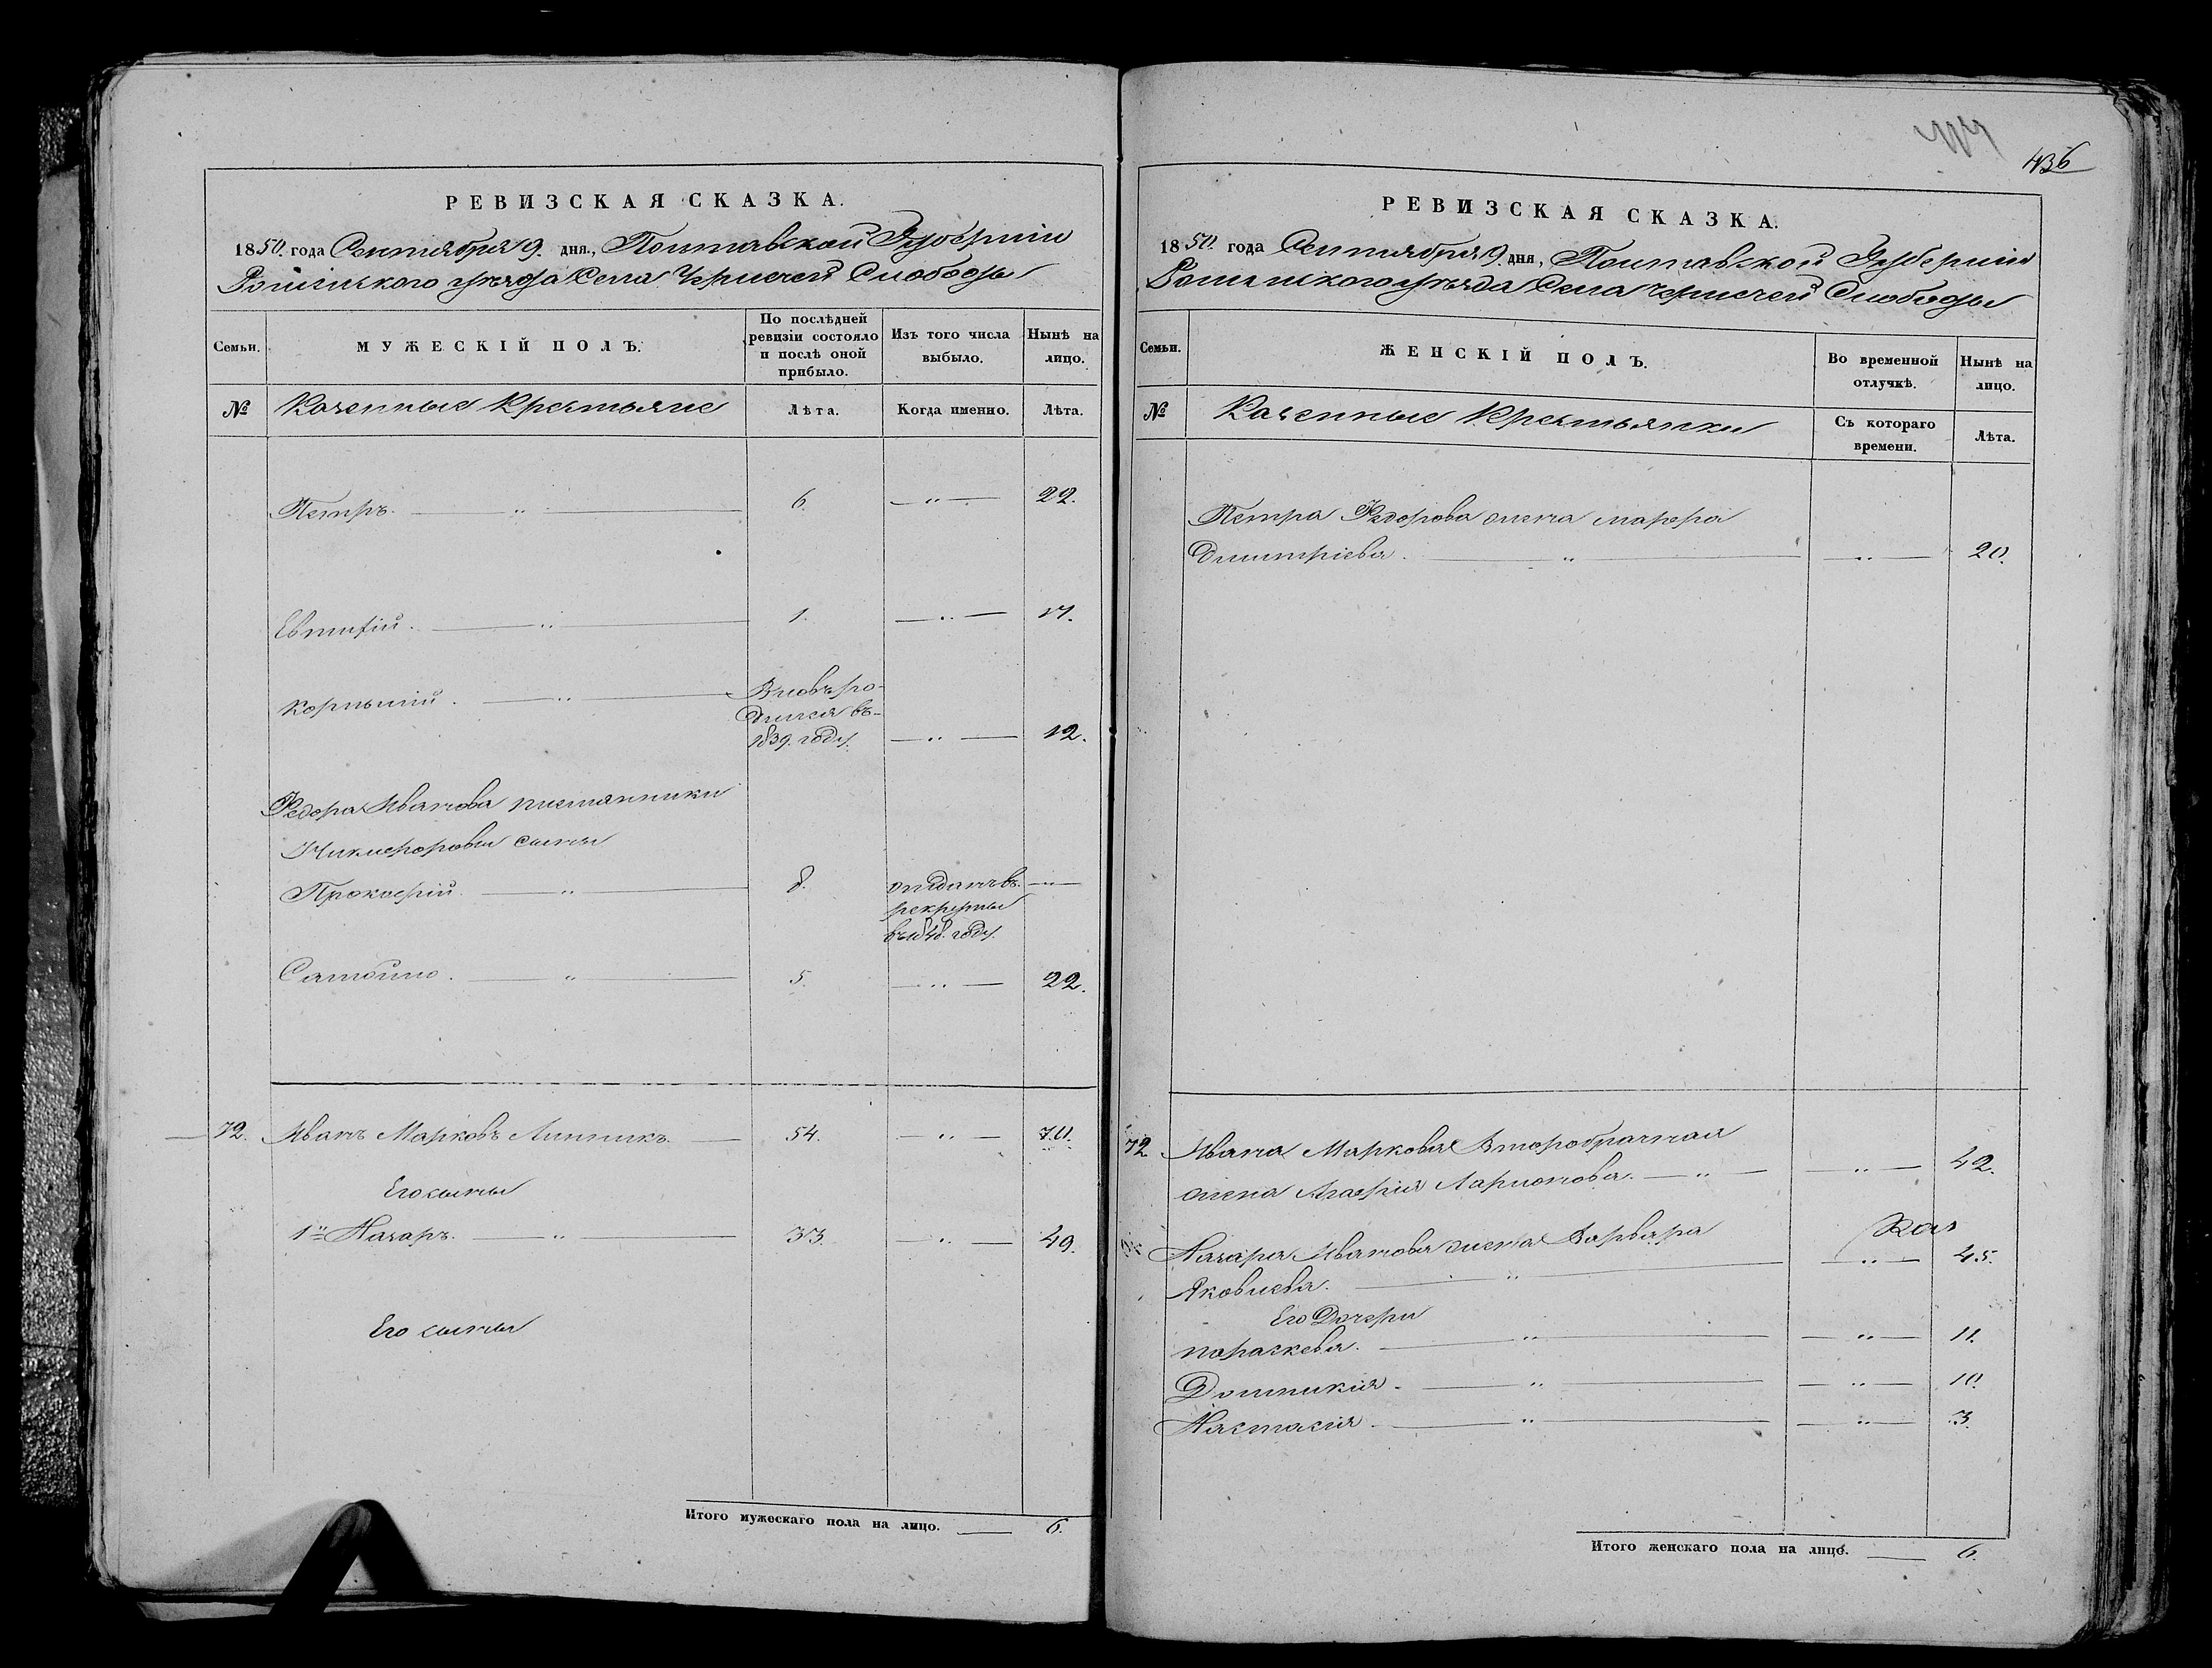 РЕВИЗСКАЯ СКАЗКА.
1850. года Сентября 9. дня, Полтавской Губерніи
Роменского уѣзда Села Чернечей Слободы
Семьи.
МУЖЕСКІЙ ПОЛЪ.
По послѣдней ревизіи состояло и послѣ оной прибыло.
Изъ того числа выбыло.
Нынѣ на лицо.
№
Казенные Крестьяне
Лѣта.
Когда именно.
Лѣта.
Петръ. — " — 6. — " — 22.
Евтифій. — " — 1. — " — 17.
Корнилій. — " — Вновь ро-
дился въ-
1839. году. — " — 12.
Федора Иванова племянники
Никифоровы сыны
Прокофій. — " — 8. отданъ въ — " —
рекруты
въ 1848. году.
Самойло. — " — 5. — " — 22.
72. Иванъ Марковъ Линникъ. — 54. — " — 70.
Его сыны
1й Назаръ. — " — 33. — " — 49.
Его сыны
Итого мужескаго пола на лицо. — 6.
436
РЕВИЗСКАЯ СКАЗКА.
1850. года Сентября 9. дня, Полтавской Губерніи
Роменского уѣзда Села Чернечей Слободы
Семьи.
ЖЕНСКІЙ ПОЛЪ.
Во временной отлучкѣ.
Нынѣ на лицо.
№
Казенные Крестьянки
Съ котораго времени.
Лѣта.
Петра Федорова жена Марфа
Дмитріева. — " — — " — 20.
72 Ивана Маркова Второбрачная
жена Агафія Ларионова. — " — — " — 42.
Назара Иванова жена Варвара
Яковлева. — " — — " — 45.
Его Дочери
Параскева. — " — — " — 11.
Домникія. — " — — " — 10.
Настасія. — " — — " — 3.
Итого женскаго пола на лицо. — 6.